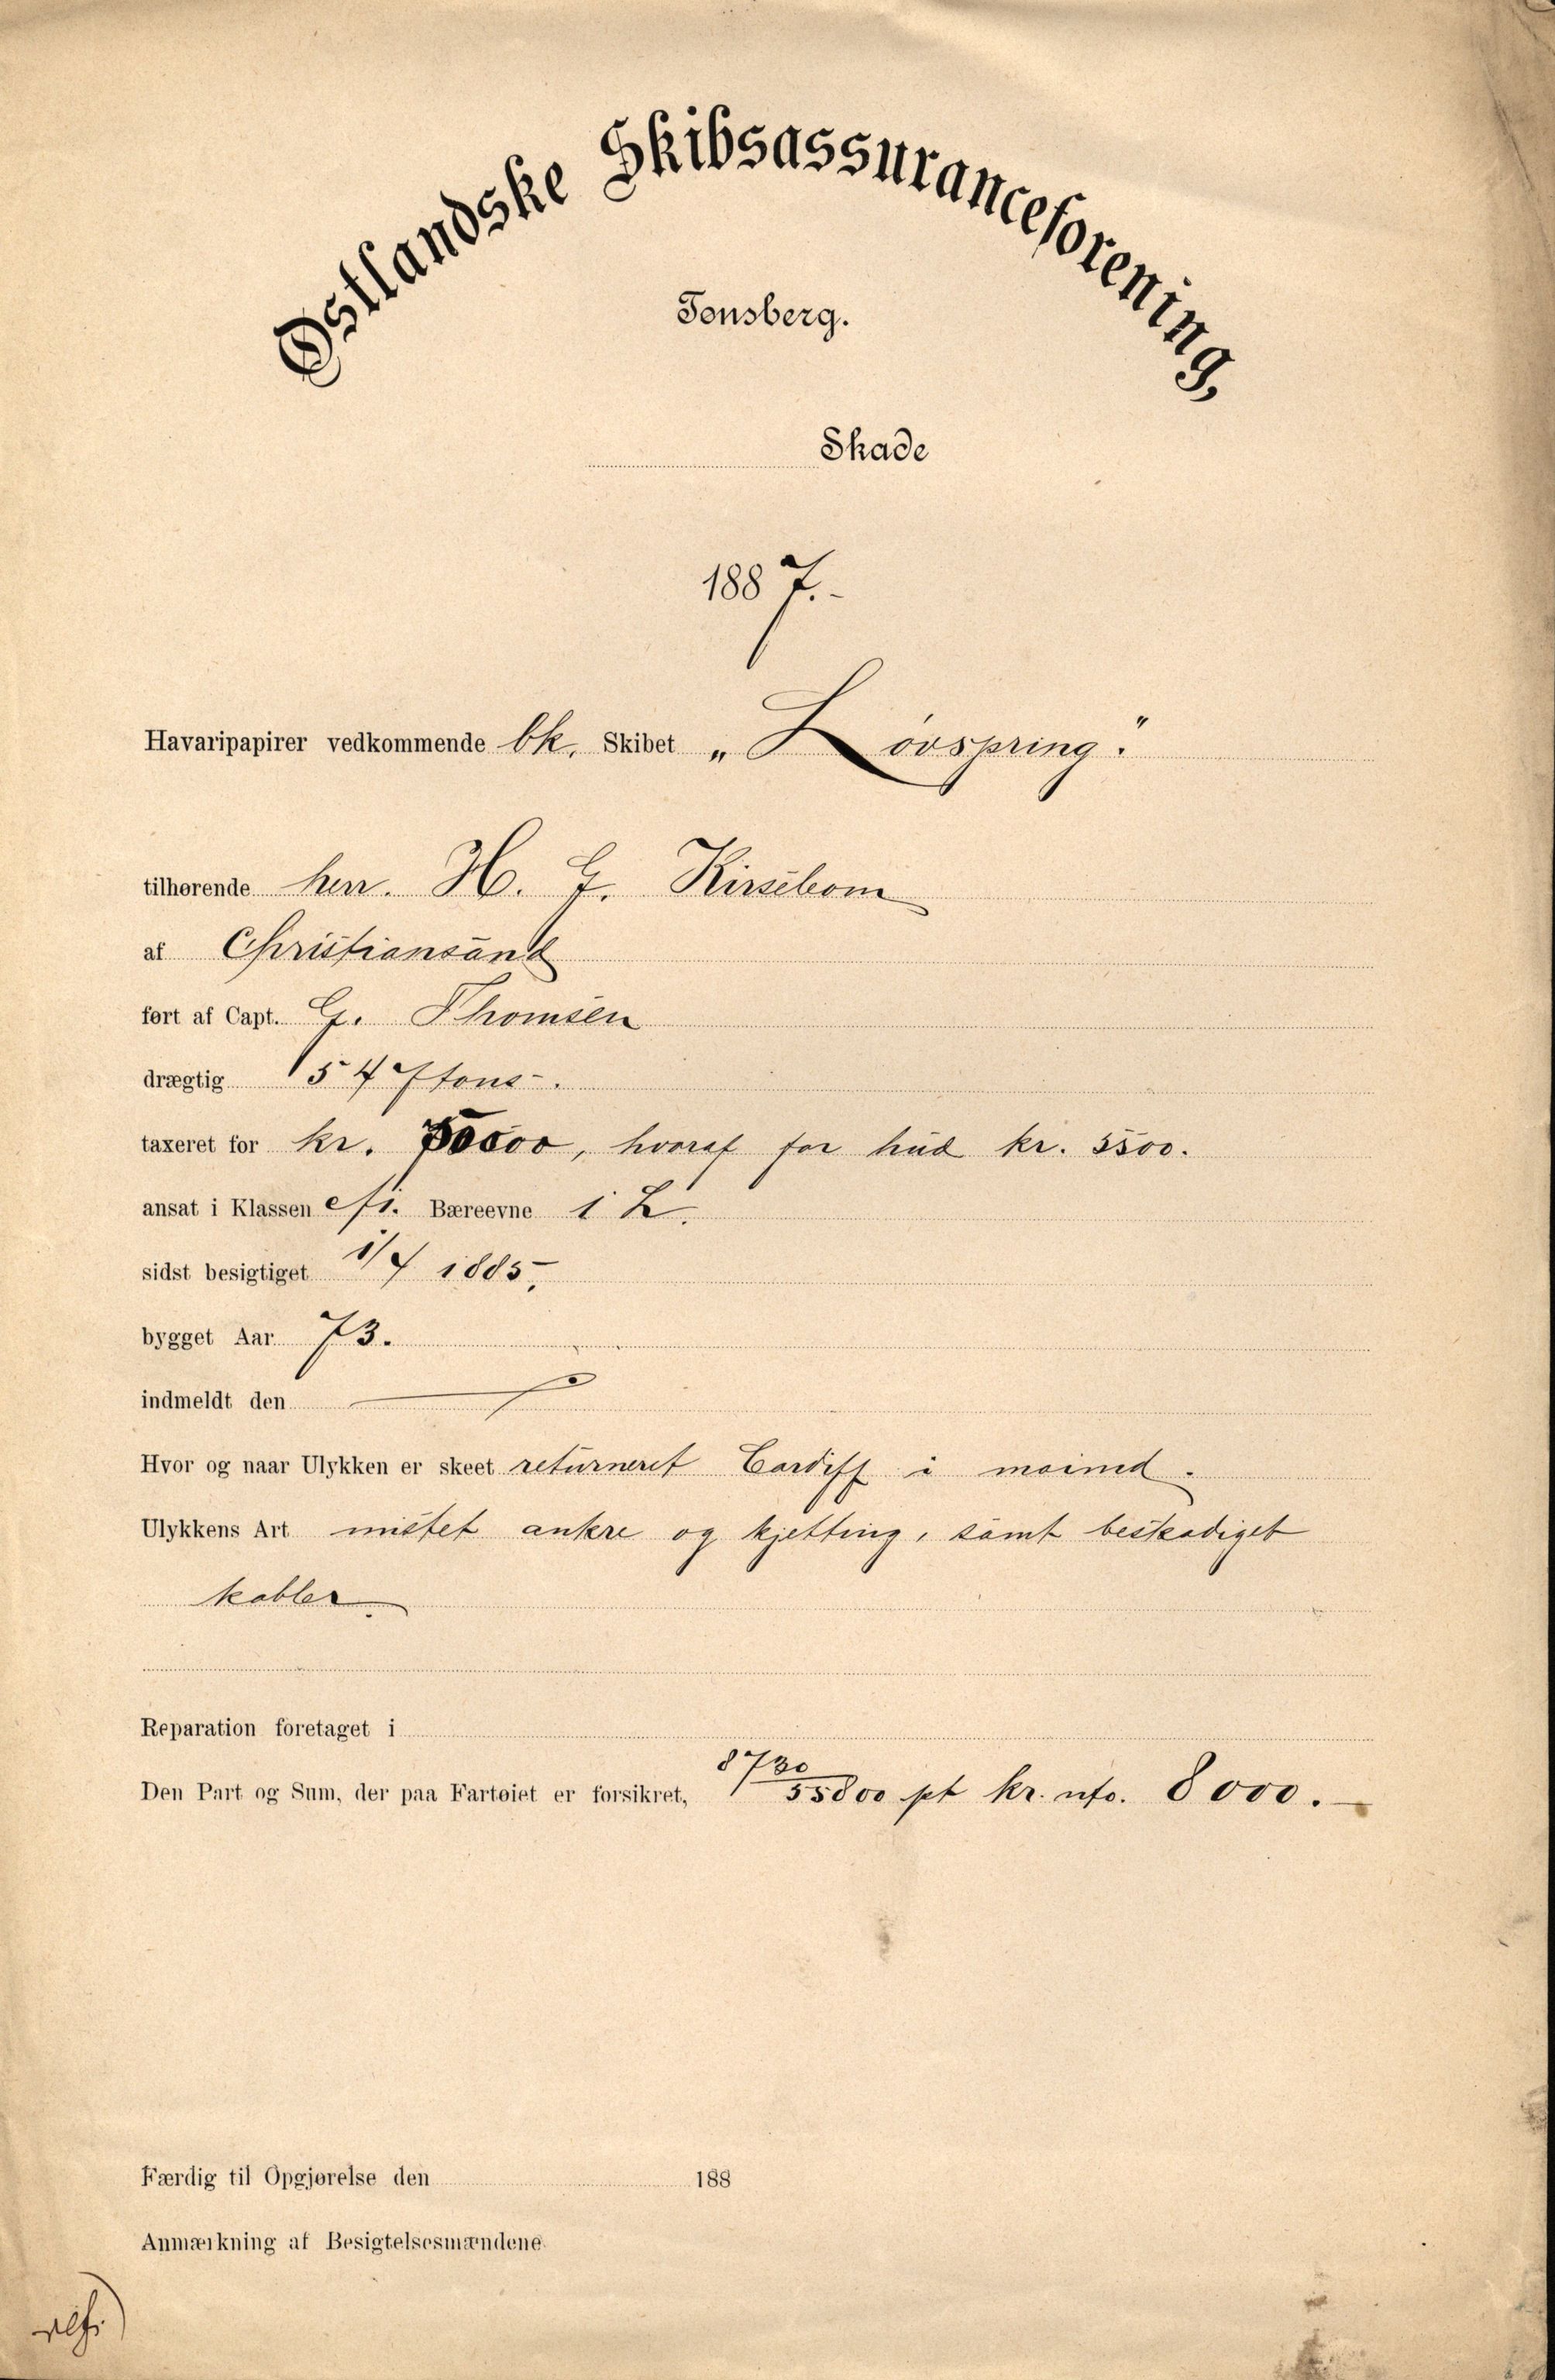 Østlandske Skibsassuranceforening,
Tønsberg.
Skade
1887.-
Havaripapirer vedkommende bk. Skibet „Løvspring."
tilhørende herr. H. G. Kirsebom
af Christiansand
ført af Capt. G. Thomsen
drægtig 547 tons.
taxeret for kr. , hvoraf for hud kr. 5500.
ansat i Klassen Bæreevne 1
sidst besigtiget 1885,
bygget Aar 73.
indmeldt den
Hvor og naar Ulykken er skeet returneret Cardiff i
Ulykkens Art mistet ankre og kjetting, samt beskadiget
kabler.
Reparation foretaget i
Den Part og Sum, der paa Fartøiet er forsikret, 8730/55800 pt kr. 8000.-
Færdig til Opgjørelse den 188
Anmærkning af Besigtelsesmændene